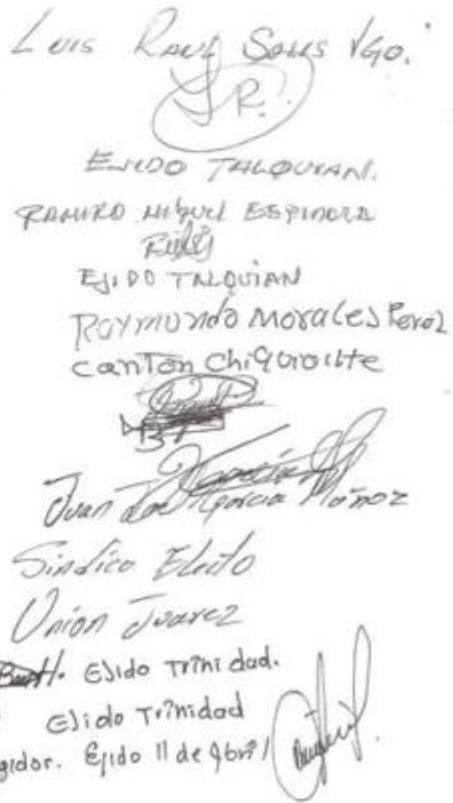 Luis Raul Solis Vgo.
R.
EJIDO TALQUIAN.
RAMIRO MIGUEL ESPINOZA
EJIDO TALQUIAN
Raymundo Morales Perez
canton chiquihuite
Juan Jose Garcia Muñoz
Sindico Electo
Union Juarez
Ejido Trinidad.
Ejido Trinidad
gidor. Ejido 11 de Abril